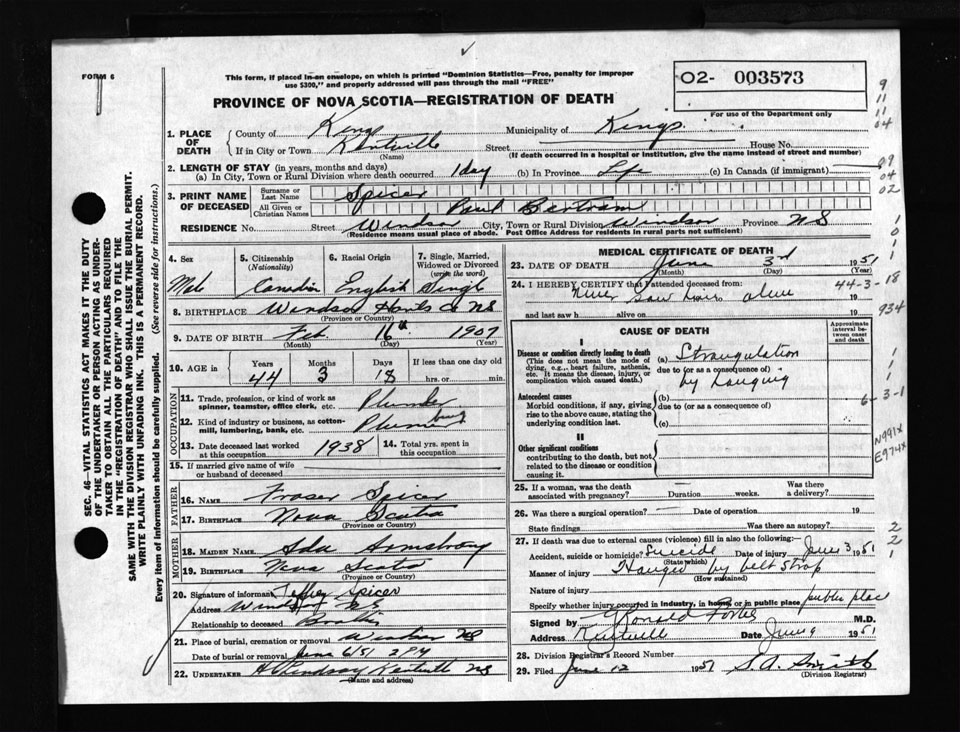 FORM 6
This form, if placed in an envelope, on which is printed "Dominion Statistics—Free, penalty for improper
use $300," and properly addressed will pass through the mail "FREE"
PROVINCE OF NOVA SCOTIA—REGISTRATION OF DEATH
02- 003573
For use of the Department only
9
11
11
04
1. PLACE OF DEATH County of Kings Municipality of Kings
If in City or Town Kentville (Name) Street House No.
(If death occurred in a hospital or institution, give the name instead of street and number)
2. LENGTH OF STAY (in years, months and days)
(a) In City, Town or Rural Division where death occurred 1 day (b) In Province Life (c) In Canada (if immigrant)
09
04
02
3. PRINT NAME OF DECEASED Surname or Last Name Spicer
All Given or Christian Names Paul Bertram
RESIDENCE No. Street Windsor City, Town or Rural Division Windsor Province NS
(Residence means usual place of abode. Post Office Address for residents in rural parts not sufficient)
4. Sex Male
5. Citizenship (Nationality) Canadian
6. Racial Origin English
7. Single, Married, Widowed or Divorced (write the word) Single
8. BIRTHPLACE Windsor Hants Co NS
(Province or Country)
9. DATE OF BIRTH Feb. 16th 1907
(Month) (Day) (Year)
10. AGE in Years 44 Months 3 Days 18 If less than one day old hrs. or min.
OCCUPATION
11. Trade, profession, or kind of work as spinner, teamster, office clerk, etc. Plumber
12. Kind of industry or business, as cotton-mill, lumbering, bank, etc. Plumbing
13. Date deceased last worked at this occupation 1938
14. Total yrs. spent in this occupation
15. If married give name of wife or husband of deceased
FATHER
16. NAME Fraser Spicer
17. BIRTHPLACE Nova Scotia
(Province or Country)
MOTHER
18. MAIDEN NAME Ada Armstrong
19. BIRTHPLACE Nova Scotia
(Province or Country)
20. Signature of informant Spicer
Address Windsor NS
Relationship to deceased Brother
21. Place of burial, cremation or removal Windsor NS
Date of burial or removal June 6/51 2 PM
22. UNDERTAKER Lindsay Kentville NS
(Name and address)
MEDICAL CERTIFICATE OF DEATH
23. DATE OF DEATH June 3rd 1951
(Month) (Day) (Year)
24. I HEREBY CERTIFY that I attended deceased from: 44-3-18
Never saw him alive 19
and last saw h alive on 19
934
CAUSE OF DEATH
Approximate interval between onset and death
I
Disease or condition directly leading to death
(This does not mean the mode of dying, e.g., heart failure, asthenia, etc. It means the disease, injury, or complication which caused death.)
(a) Strangulation
due to (or as a consequence of)
by hanging
Antecedent causes
Morbid conditions, if any, giving rise to the above cause, stating the underlying condition last.
(b)
due to (or as a consequence of)
(c)
6-3-1
II
Other significant conditions
contributing to the death, but not related to the disease or condition causing it.
N991X
E974X
25. If a woman, was the death associated with pregnancy? Duration weeks. Was there a delivery?
26. Was there a surgical operation? Date of operation 19
State findings Was there an autopsy?
27. If death was due to external causes (violence) fill in also the following:—
Accident, suicide or homicide? Suicide Date of injury June 3 1951
(State which)
Manner of injury Hanged by belt strap
(How sustained)
Nature of injury
Specify whether injury occurred in industry, in home, or in public place public place
Signed by Ronald Forbes M.D.
Address Kentville Date June 9 1951
28. Division Registrar's Record Number
29. Filed June 12 1951 S.A. Smith
(Division Registrar)
2
2
1
SEC. 46—VITAL STATISTICS ACT MAKES IT THE DUTY
OF THE UNDERTAKER OR PERSON ACTING AS UNDER-
TAKER TO OBTAIN ALL THE PARTICULARS REQUIRED
IN THE "REGISTRATION OF DEATH" AND TO FILE THE
SAME WITH THE DIVISION REGISTRAR WHO SHALL ISSUE THE BURIAL PERMIT.
WRITE PLAINLY WITH UNFADING INK. THIS IS A PERMANENT RECORD.
Every item of information should be carefully supplied. (See reverse side for instructions.)